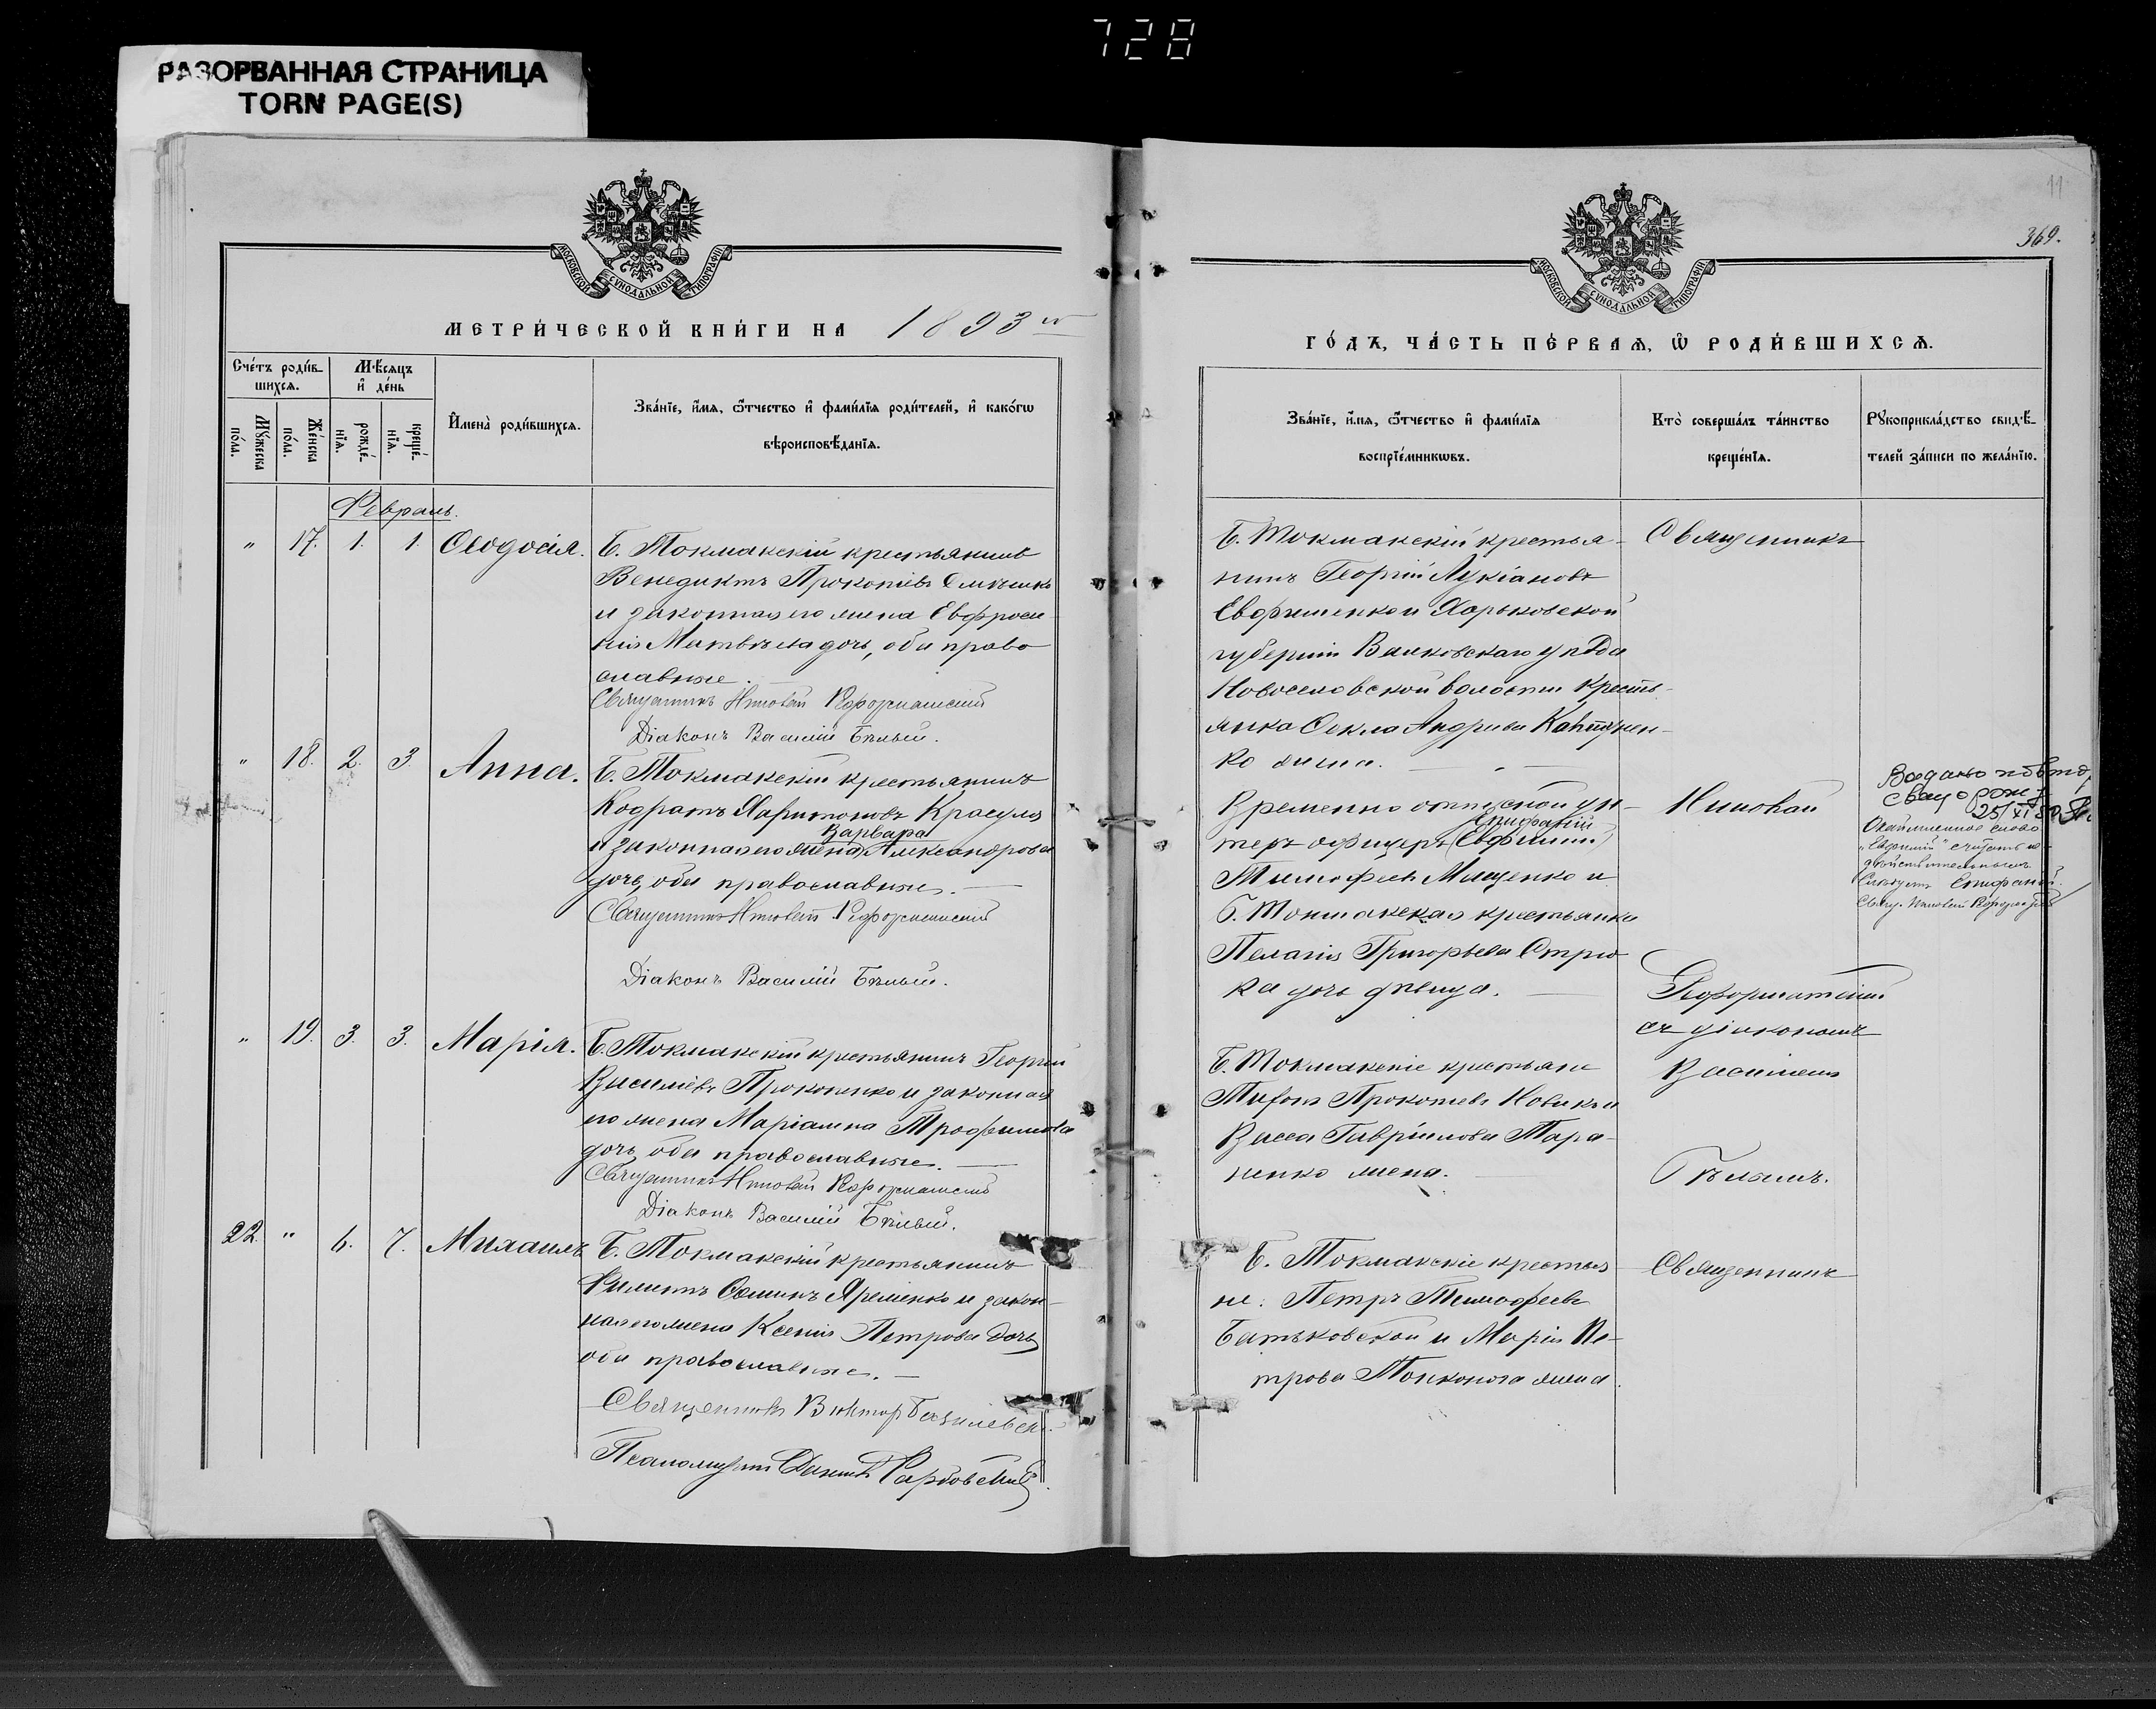 728
РАЗОРВАННАЯ СТРАНИЦА
TORN PAGE(S)
МОСКОВСКОЙ СѴНОДАЛЬНОЙ ТИПОГРАФІИ
МЕТРИ́ЧЕСКОЙ КНИ́ГИ НА 1893 го
Сче́тъ роди́в-
шихся.
Мѣ́сяцъ
и҆ де́нь
Му́жеска
по́ла.
Же́нска
по́ла.
рожде́-
нїя.
креще́-
нїя.
И҆мена̀ роди́вшихся.
Зва́нїе, и҆́мя, ѻ҆́тчество и҆ фами́лїя роди́телей, и҆ како́гѡ
вѣроисповѣ́данїя.
Февраль.
" 17. 1. 1. Ѳеодосія. Б. Токмакскій крестьянинъ
Венедиктъ Прокопіевъ
и законная его жена Евфроси-
нія Матвѣева дочь, оба право
славные.
Священникъ
Діаконъ Василій Бѣлый.
" 18. 2. 3. Анна. Б. Токмакскій крестьянинъ
Кодратъ Харитоновъ Красуля
Варвара
и законная его жена Александрова
дочь, оба православные.
Священникъ
Діаконъ Василій Бѣлый.
" 19. 3. 3. Марія. Б. Токмакскій крестьянинъ Георгій
Василіевъ Прокопенко и законная
его жена Маріамна Трофимова
дочь, оба православные.
Священникъ
Діаконъ Василій Бѣлый.
22. " 6. 7. Михаилъ Б. Токмакскій крестьянинъ
Филиппъ Яременко и закон-
ная его жена Ксенія Петрова дочь
оба православные.
Священникъ Викторъ Базилевск
Псаломщикъ
11
369.
МОСКОВСКОЙ СѴНОДАЛЬНОЙ ТИПОГРАФІИ
ГО́ДЪ, ЧА́СТЬ ПЕ́РВАЯ, Ѽ РОДИ́ВШИХСЯ.
Зва́нїе, и҆́мя, ѻ҆́тчество и҆ фами́лїя
воспрїе́мникѡвъ.
Кто̀ соверша́лъ та́инство
креще́нїя.
Рꙋкоприкла́дство свидѣ́-
телей за́писи по жела́нїю.
Б. Токмакскій крестья-
нинъ Георгій Лукіановъ
Евфименко и Харьковской
губерніи Валковскаго уѣзда
Новоселовской волости кресть-
янка Ѳекла Андреева
ко жена.
Священникъ
Временно отпускной ун-
Епифаній
теръ офицеръ (Евфимій)
Тимофеевъ Мищенко и
Б. Токмакская крестьянка
Пелагія Григорьева Стрю
ка дочь дѣвица.
Николай
Реформатскій
съ діакономъ
Василіемъ
Бѣлымъ.
25/XI
слово
„Евфимій" считать не-
дѣйствительнымъ
Епифаній.
Б. Токмакскіе крестьяне
Прокопіевъ Новикъ и
Васса Гавріилова Тара-
ненко жена.
Б. Токмакскіе крестья
не: Петръ Тимофеевъ
Батьковской и Марія Пе-
трова Тонконога жена.
Священникъ